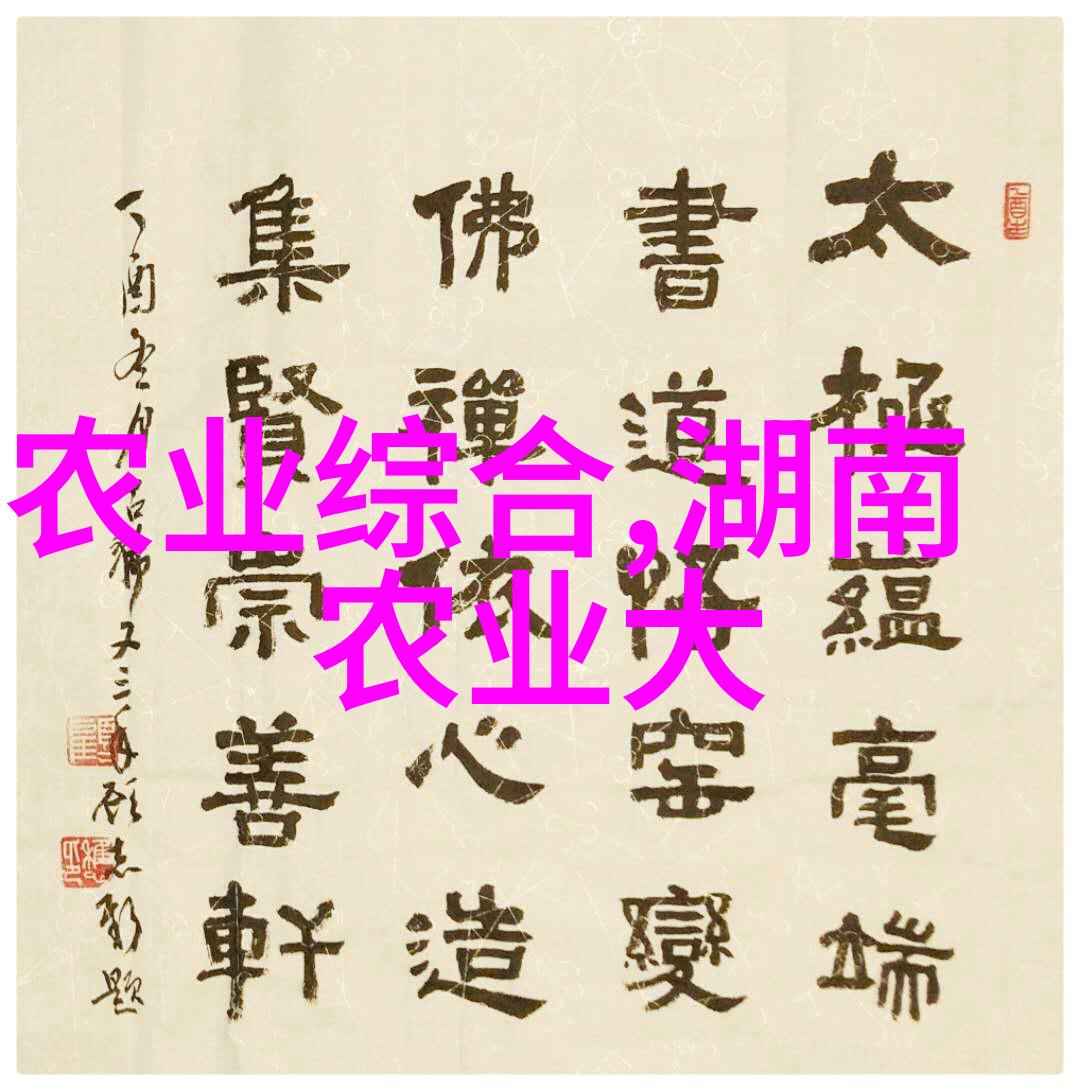 农业综合,湖南
农业大
太極蘊毫端
書道悟窑變
佛禪依心造
集賢崇善軒